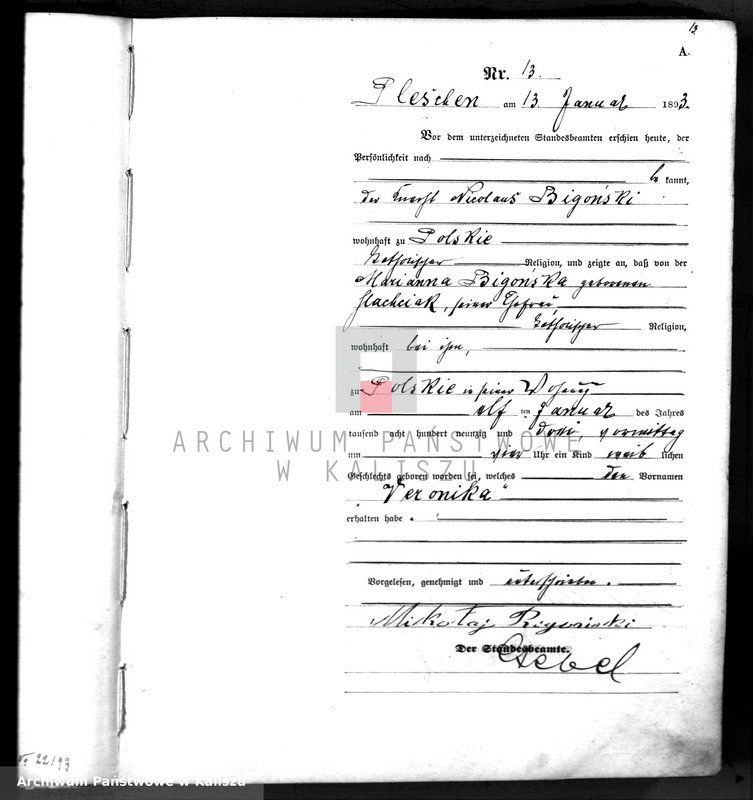 13
A.
Nr. 13.
Pleschen am 13. Januar 1893.
Vor dem unterzeichneten Standesbeamten erschien heute, der
Persönlichkeit nach
be kannt,
der Knecht Nicolaus Bigoński
wohnhaft zu Polskie
katholischer Religion, und zeigte an, daß von der
Marianna Bigońska geborenen
, seiner Ehefrau,
katholischer Religion,
wohnhaft bei ihm,
zu Polskie in seiner Wohnung
am elf ten Januar des Jahres
tausend acht hundert neunzig und drei, vormittag
um vier Uhr ein Kind weib lichen
Geschlechts geboren worden sei, welches den Vornamen
"Veronika"
erhalten habe.
Vorgelesen, genehmigt und unterschrieben.
Mikołaj
Der Standesbeamte.
ARCHIWUM PAŃSTWOWE
W KALISZU
22/93
Archiwum Państwowe w Kaliszu